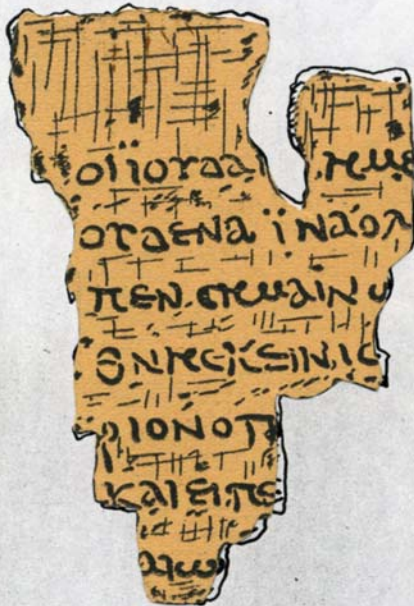 οϊϊουδα ημε
ουδενα ϊναολ
πεν ϲημαινω
θνηϲκεινιϲ
ριονοπ
καιειπε
αιω